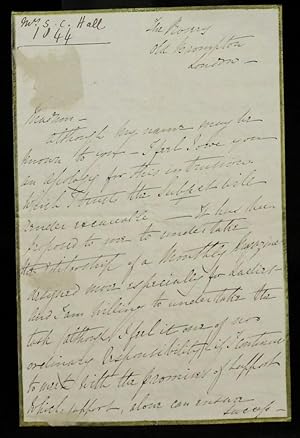 Mrs S. C. Hall
1844
The Rosery
Old Brompton
London -
Madam -
Although my name may be
known to you - I feel I owe you
an apology for this intrusion.
which I trust the subject will
render excusable - It has been
proposed to me to undertake
the Editorship of a Monthly Magazine
designed more especially for Ladies -
and I am willing to undertake the
task although I feel it one of no
ordinary responsibility if I continue
to meet with the promises of support
which support, alone can ensure
success -